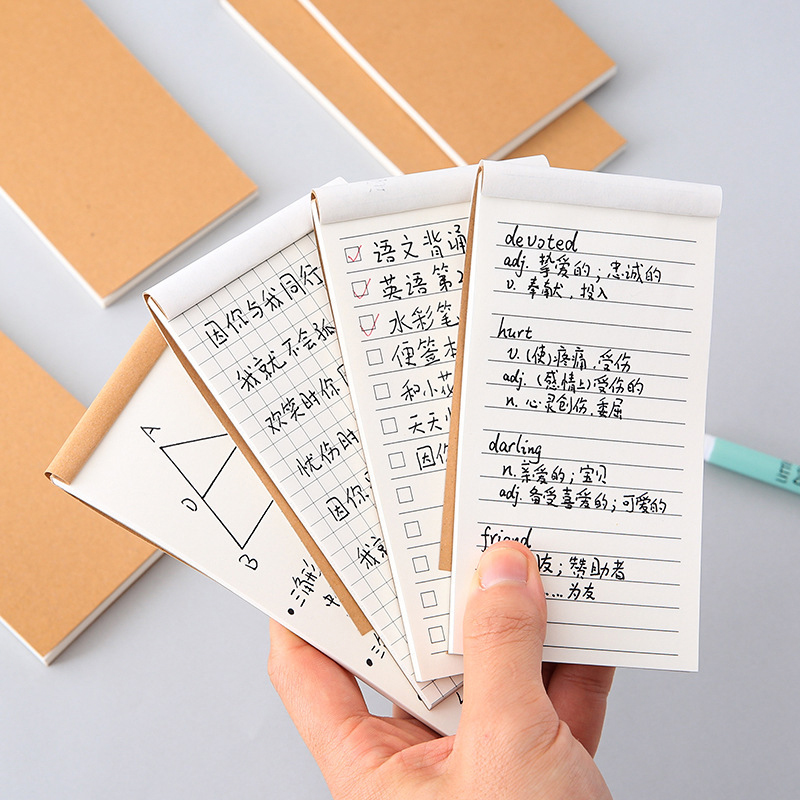 A
D
B
三角形
中
因你与我同行
我就不会孤
欢笑时你
忧伤时
因你
我就
语文背诵
英语第
水彩笔
便签本
和小花
天天
因你
devoted
adj. 挚爱的；忠诚的
v. 奉献，投入
hurt
v. (使)疼痛，受伤
adj. (感情上)受伤的
n. 心灵创伤，委屈
darling
n. 亲爱的；宝贝
adj. 备受喜爱的；可爱的
friend
友；赞助者
....为友